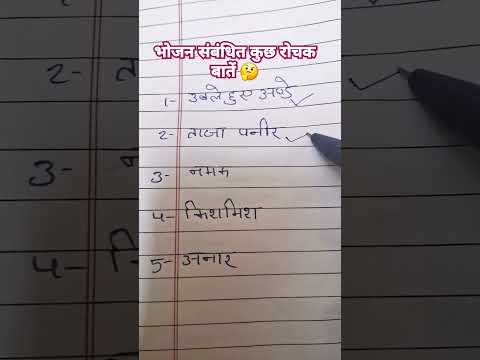 भोजन संबंधित कुछ रोचक
बातें 🤔
1- उबले हुए अण्डे
2- ताजा पनीर
3- नमक
4- किशमिश
5- अनार